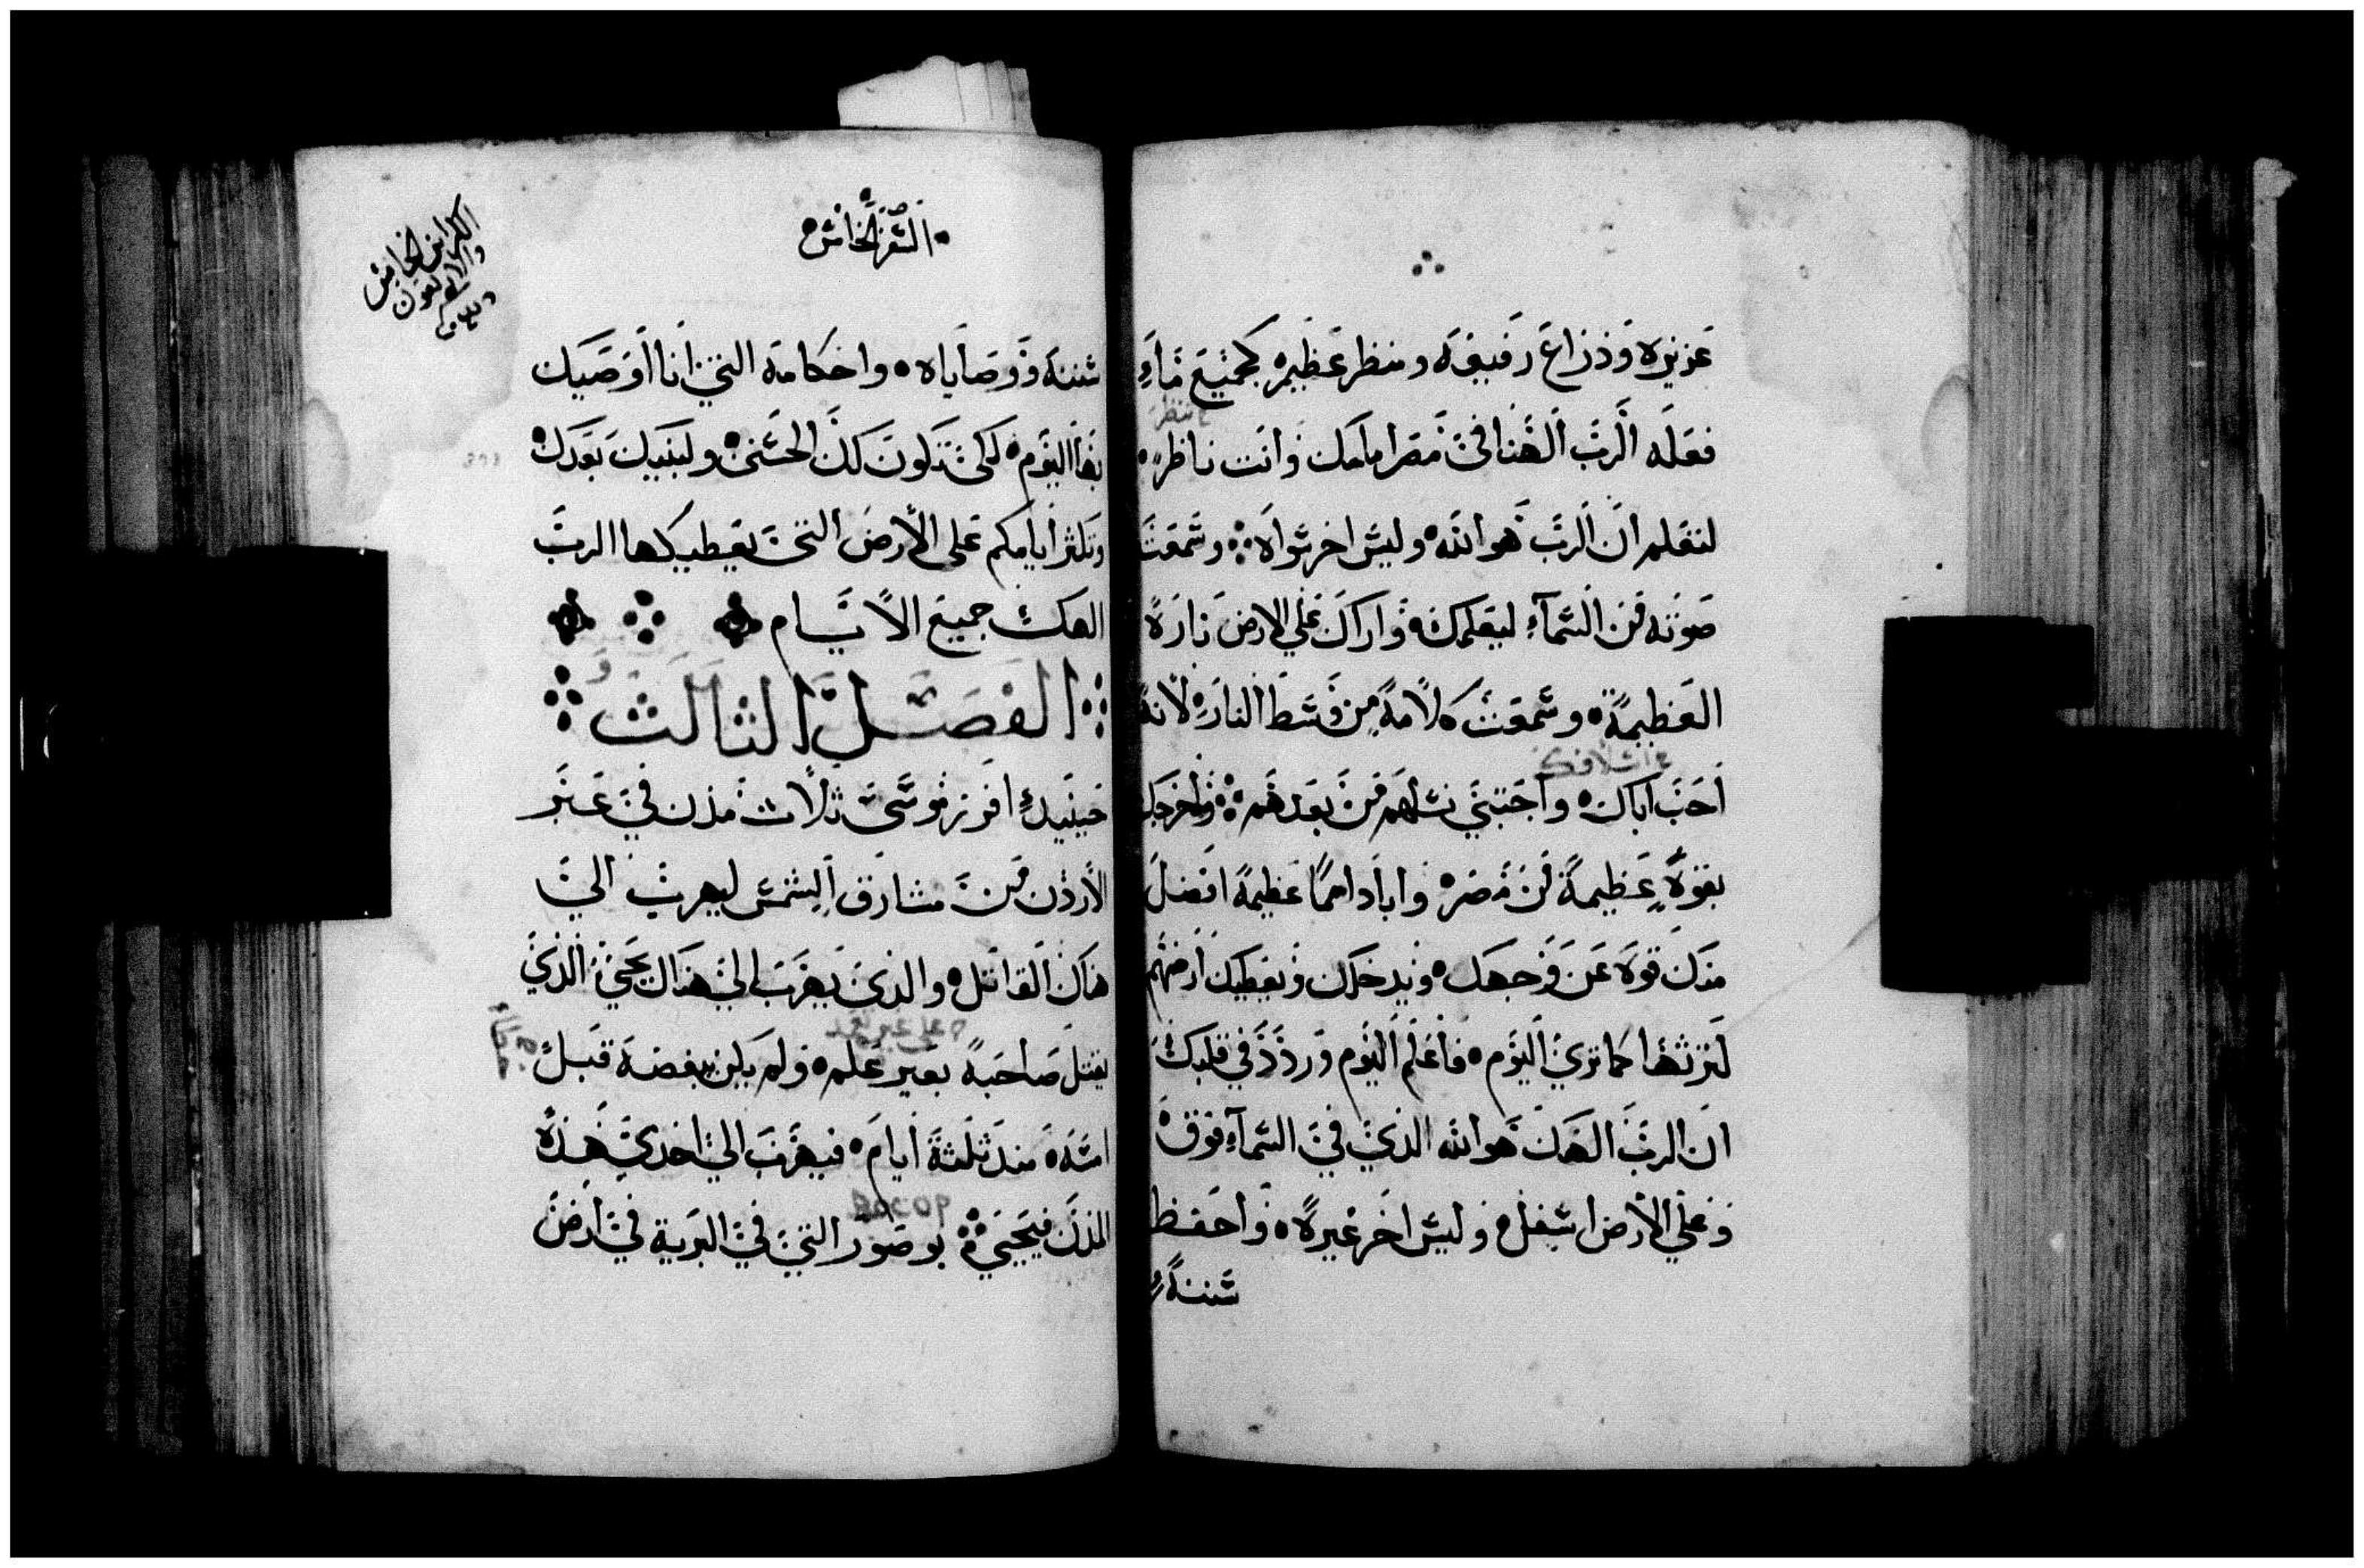 عزيزه وذراع رفيعه ومنظر عظيم كجميع ماء
ينظر
فعله الرب الهنا في مصر امامك وانت ناظر
لتعلم ان الرب هو الله وليس اخر سواه وسمعت
صوته من السماء ليعلمك واراك علي الارض ناره
العظيمة وسمعت كلامه من وسط الناره لانه
احب اباك واجتبي نسلهم من بعدهم واخرجك
بقوة عظيمة من مصر واباد امما عظيمة افضل
منك قوة عن وجهك ويدخلك ويعطيك ارضهم
لترثها كما تري اليوم فاعلم اليوم وردد في قلبك
ان الرب الهك هو الله الذي في السماء فوق
وعلي الارض اسفل وليس اخر غيره واحفظ
سننه
السفر الخامس
الكراس الخامس
والاربعون
سننه ووصاياه واحكامه التي انا اوصيك
بها اليوم لكي تكون لك الحسني ولبنيك بعدك
وتكثر ايامكم علي الارض التي يعطيكها الرب
الهك جميع الايام
الفصل الثالث
حينيد افرز موسي ثلاث مدن في عبر
الاردن من مشارق الشمس ليهرب الي
هناك القاتل والذي يهرب الي هناك يحيي الذي
علي غير تعمد
يقتل صاحبه بغير علم ولم يكن يبغضه قبل
امسه منذ ثلثة ايام فيهرب الي احدي هذه
المدن فيحيي بوصور التي في البرية في ارض